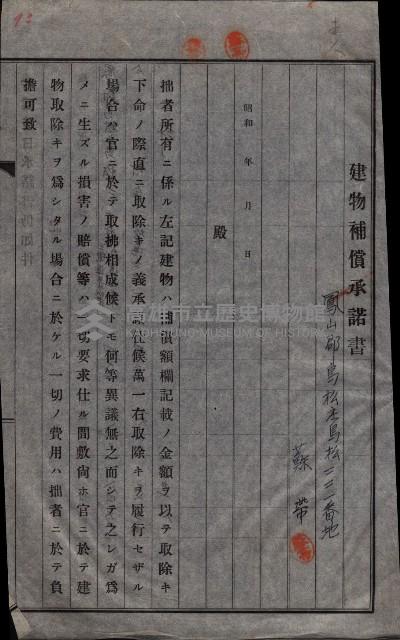 建物補償承諾書
鳳山郡鳥松庄鳥松二三一番地
蘇帶
昭和 年 月 日
殿
拙者所有ニ係ル左記建物ハ補償額欄記載ノ金額ヲ以テ取除キ
下命ノ際直ニ取除キノ義承諾仕候萬一右取除キヲ履行セザル
場合ハ官ニ於テ取拂相成候トモ何等異議無之而シテ之レガ爲
メニ生ズル損害ノ賠償等ハ一切要求仕ル間敷尙ホ官ニ於テ建
物取除キヲ爲シタル場合ニ於ケル一切ノ費用ハ拙者ニ於テ負
擔可致
高雄市立歷史博物館
KAOHSIUNG MUSEUM OF HISTORY